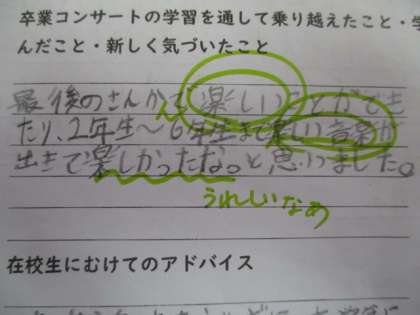 卒業コンサートの学習を通して乗り越えたこと・学
んだこと・新しく気づいたこと
最後のさんかで楽しいことができ
たり、2年生〜6年生まで楽しい音楽が
出きて楽しかったな。と思いました。
うれしいなぁ
在校生にむけてのアドバイス